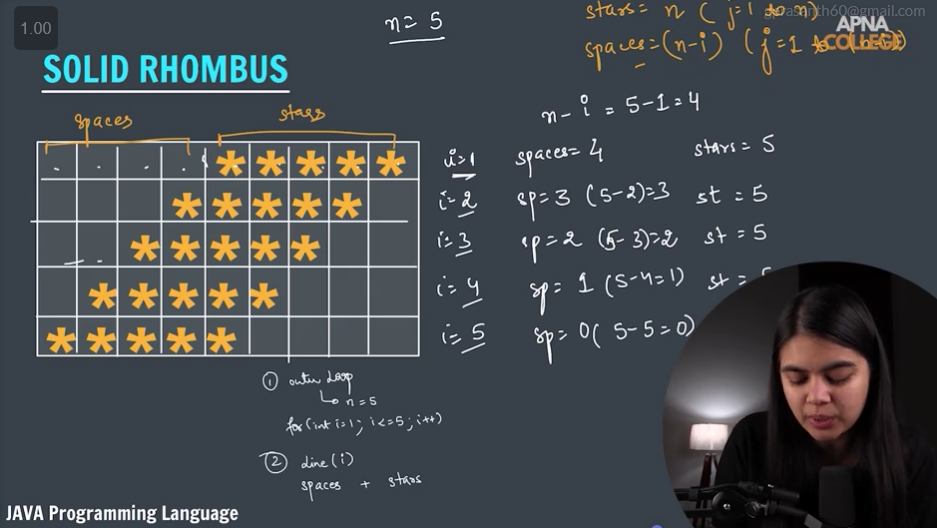 1.00
n = 5
stars = n ( j=1 to n)
spaces = (n-i) ( j=1 to
@gmail.com
APNA
COLLEGE
SOLID RHOMBUS
spaces
stars
n - i = 5-1 = 4
i=1 spaces = 4 stars = 5
i= 2 sp= 3 (5-2)=3 st = 5
i= 3 sp = 2 (5-3)=2 st = 5
i= 4 sp= 1 (5-4=1) st =
i= 5 sp= 0( 5-5=0)
* * * * *
* * * * *
* * * * *
* * * * *
* * * * *
① outer loop
↳ n = 5
for(int i=1; i<=5; i++)
② line(i)
spaces + stars
JAVA Programming Language